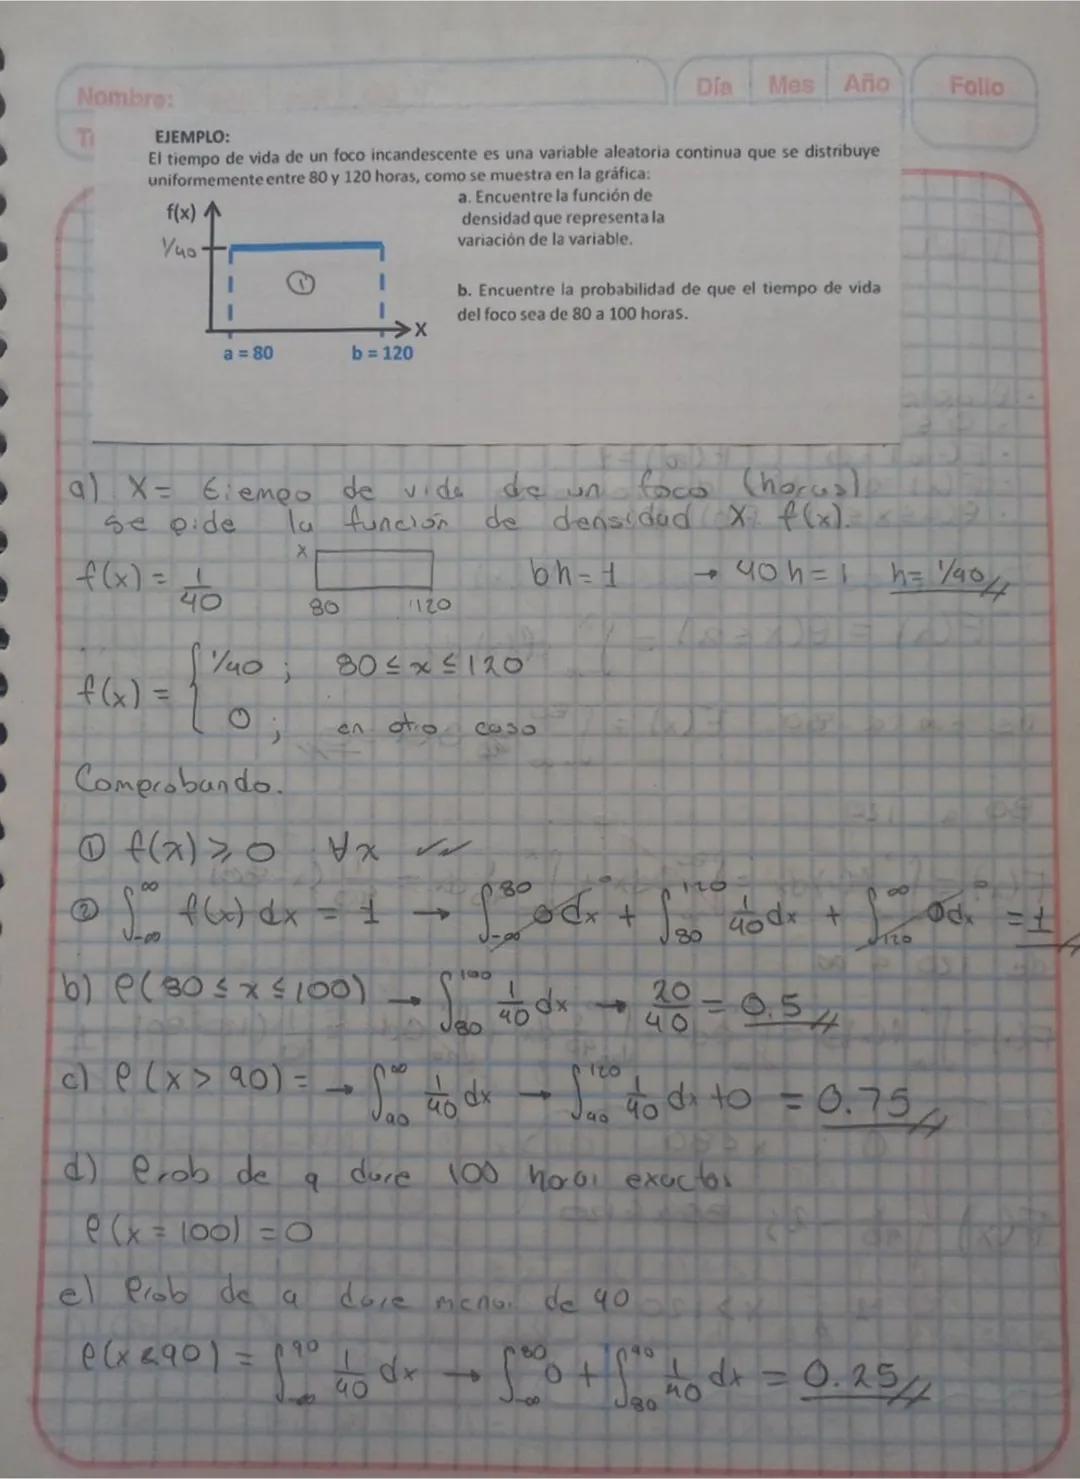 Nombre:
Día Mes Año Folio
EJEMPLO:
El tiempo de vida de un foco incandescente es una variable aleatoria continua que se distribuye
uniformemente entre 80 y 120 horas, como se muestra en la gráfica:
a. Encuentre la función de
densidad que representa la
variación de la variable.
b. Encuentre la probabilidad de que el tiempo de vida
del foco sea de 80 a 100 horas.
f(x)
1/40
1
X
a = 80 b = 120
a) X= tiempo de vida de un foco (horas)
se pide la función de densidad X f(x).
f(x) = 1/40 x 80 120 bh = 1 → 40 h = 1 h= 1/40
f(x) = { 1/40 ; 80 ≤ x ≤ 120
0 ; en otro caso
Comprobando.
① f(x) ≥ 0 ∀x ✓✓
② ∫_{-∞}^{∞} f(x) dx = 1 → ∫_{-∞}^{80} 0 dx + ∫_{80}^{120} 1/40 dx + ∫_{120}^{∞} 0 dx = 1
b) P(80 ≤ x ≤ 100) → ∫_{80}^{100} 1/40 dx → 20/40 = 0.5
c) P(x > 90) = → ∫_{90}^{∞} 1/40 dx → ∫_{90}^{120} 1/40 dx + 0 = 0.75
d) Prob de q dure 100 horas exactas
P(x = 100) = 0
e) Prob de q dure menos de 90
P(x ≤ 90) = ∫_{-∞}^{90} 1/40 dx → ∫_{-∞}^{80} 0 + ∫_{80}^{90} 1/40 dx = 0.25